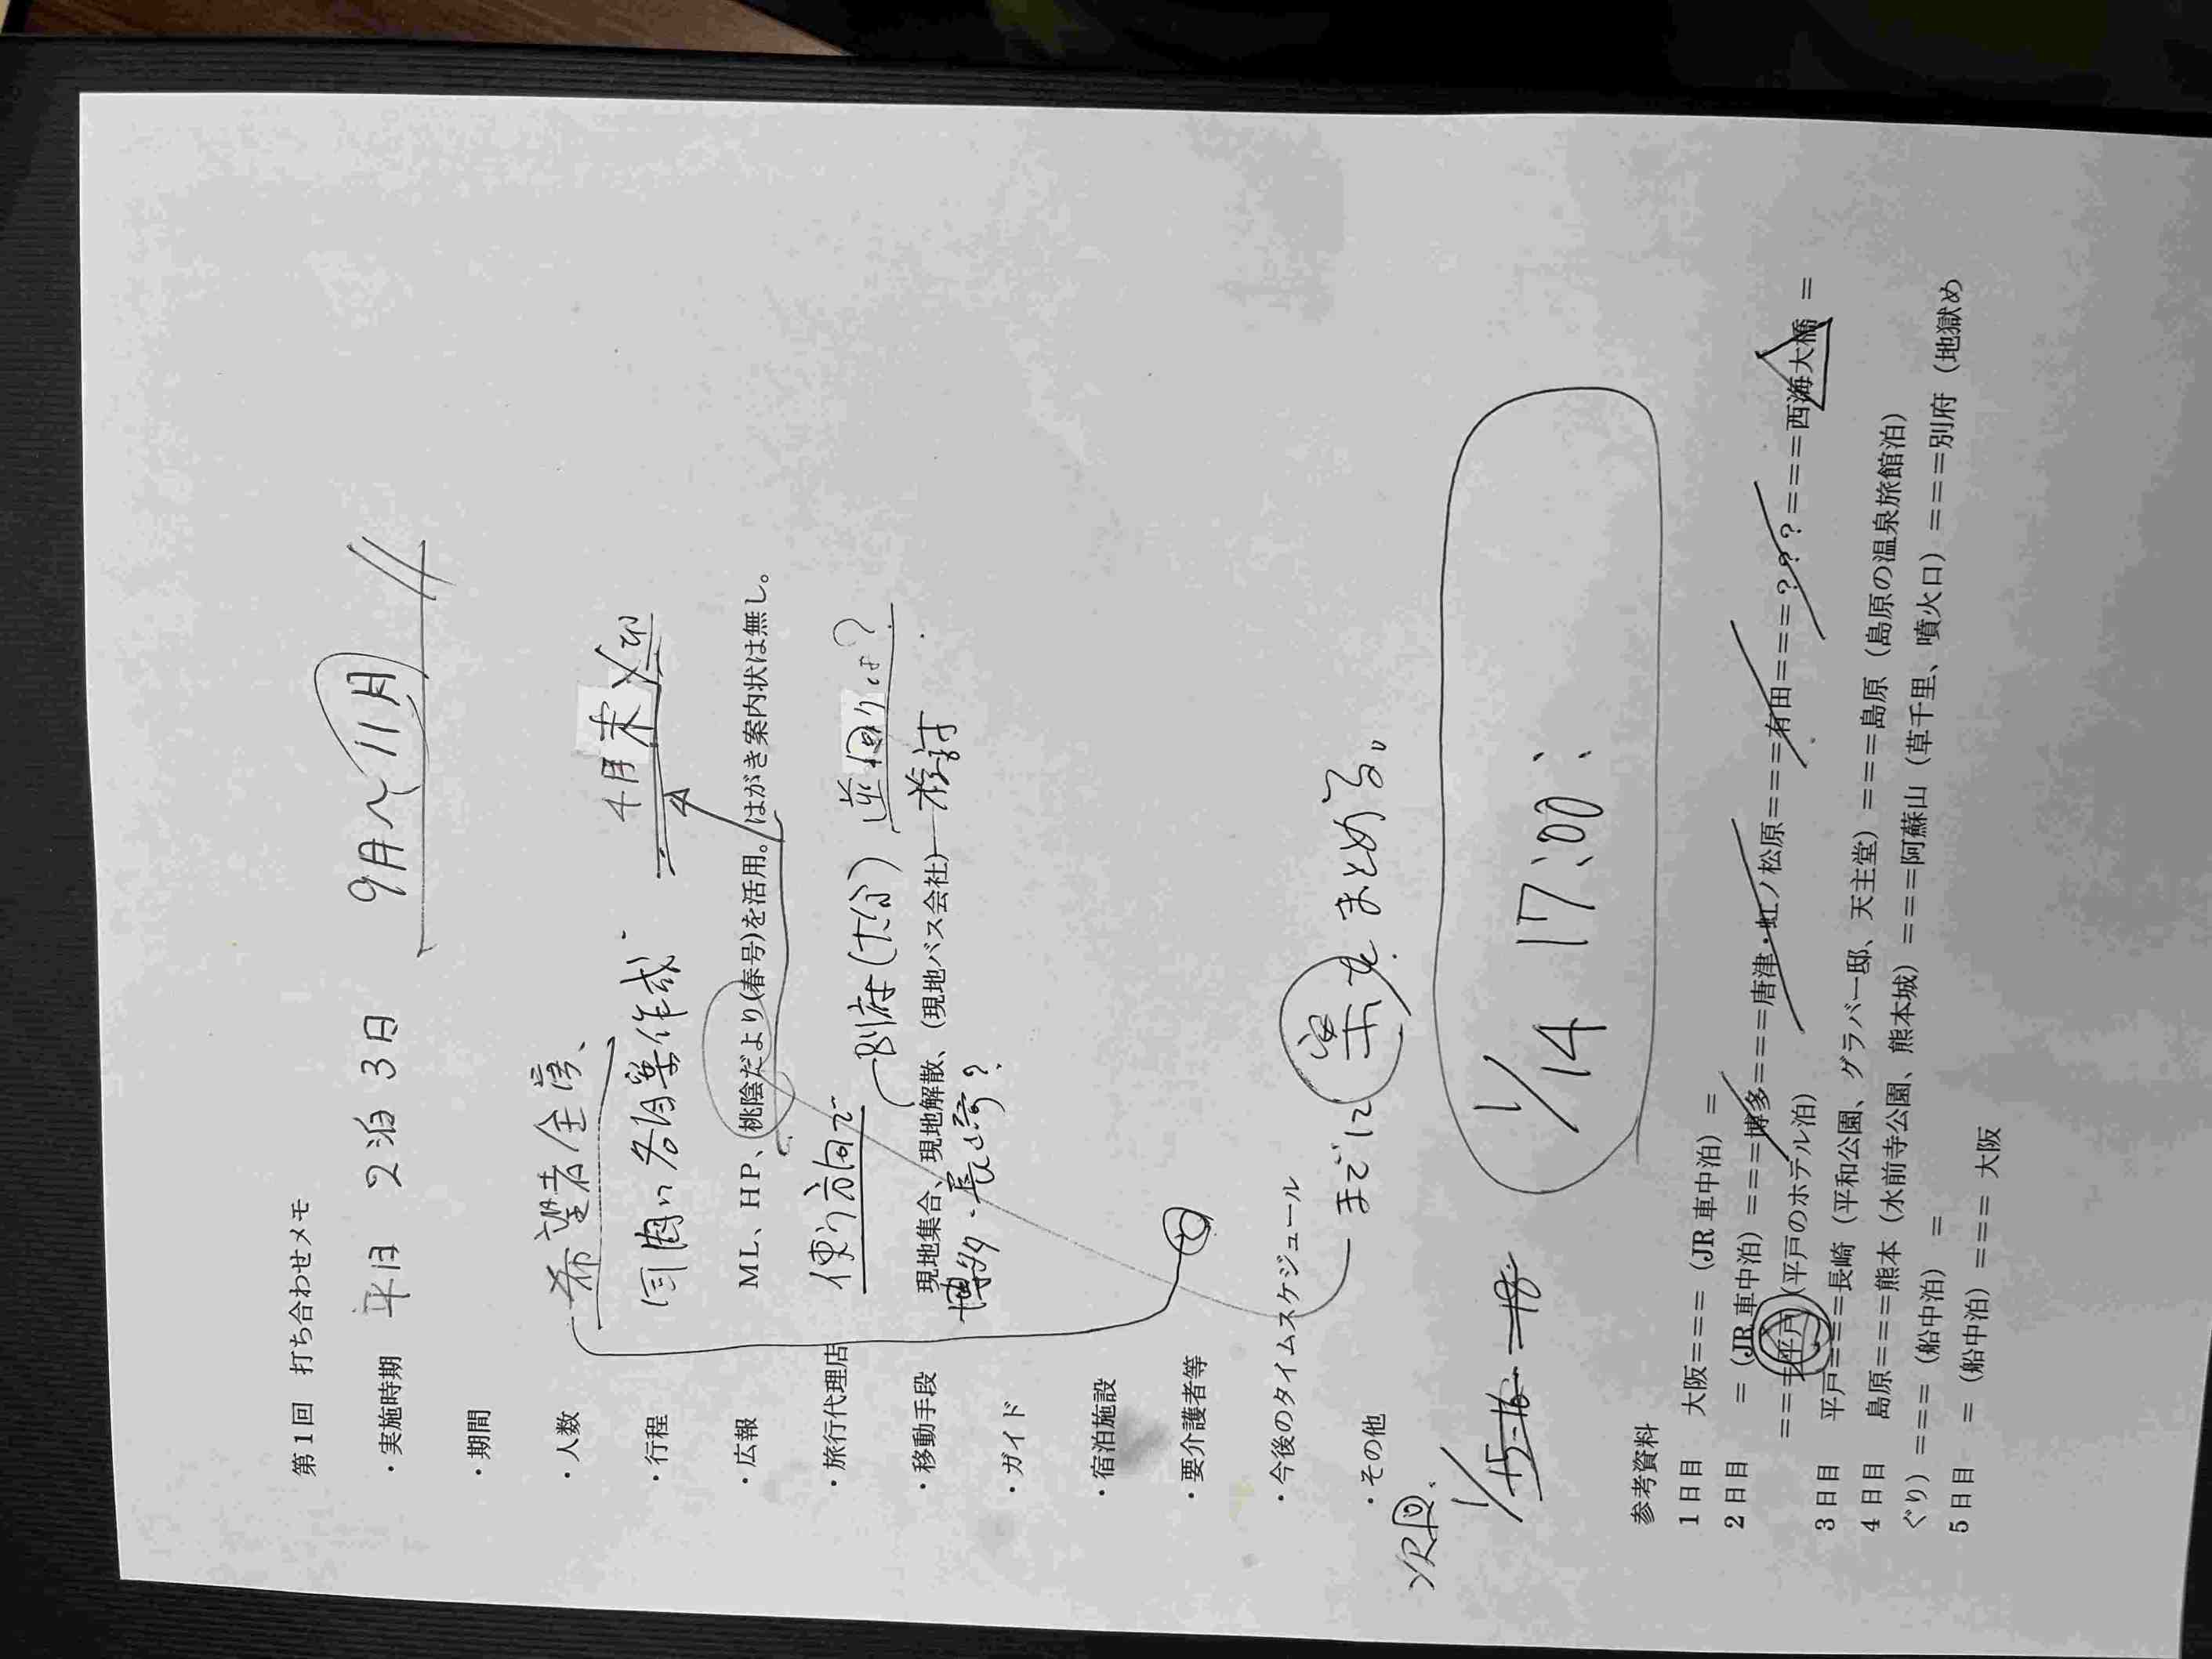 第１回　打ち合わせメモ
・実施時期　平日　２泊３日　９月〜１１月
・期間
・人数　希望者全員、
・行程　各自案作成　４月末〆切
・広報　ＭＬ、ＨＰ、桃陰だより(春号)を活用。はがき案内状は無し。
・旅行代理店　使う方向で　別府(大分)　逆回りは？
・移動手段　現地集合、現地解散、（現地バス会社）　検討
博多・長崎？
・ガイド
・宿泊施設
・要介護者等
・今後のタイムスケジュール
までに　案を　まとめる。
・その他
次回、
1/15-16-18
1/14　17:00
参考資料
１日目　大阪＝＝＝（JR 車中泊）＝
２日目　＝（JR 車中泊）＝＝＝博多＝＝＝唐津・虹ノ松原＝＝＝有田＝＝＝？？？＝＝＝西海大橋＝
＝＝＝平戸（平戸のホテル泊）
３日目　平戸＝＝＝長崎（平和公園、グラバー邸、天主堂）＝＝＝島原（島原の温泉旅館泊）
４日目　島原＝＝＝熊本（水前寺公園、熊本城）＝＝＝阿蘇山（草千里、噴火口）＝＝＝別府（地獄め
ぐり）＝＝＝（船中泊）＝
５日目　＝（船中泊）＝＝＝ 大阪